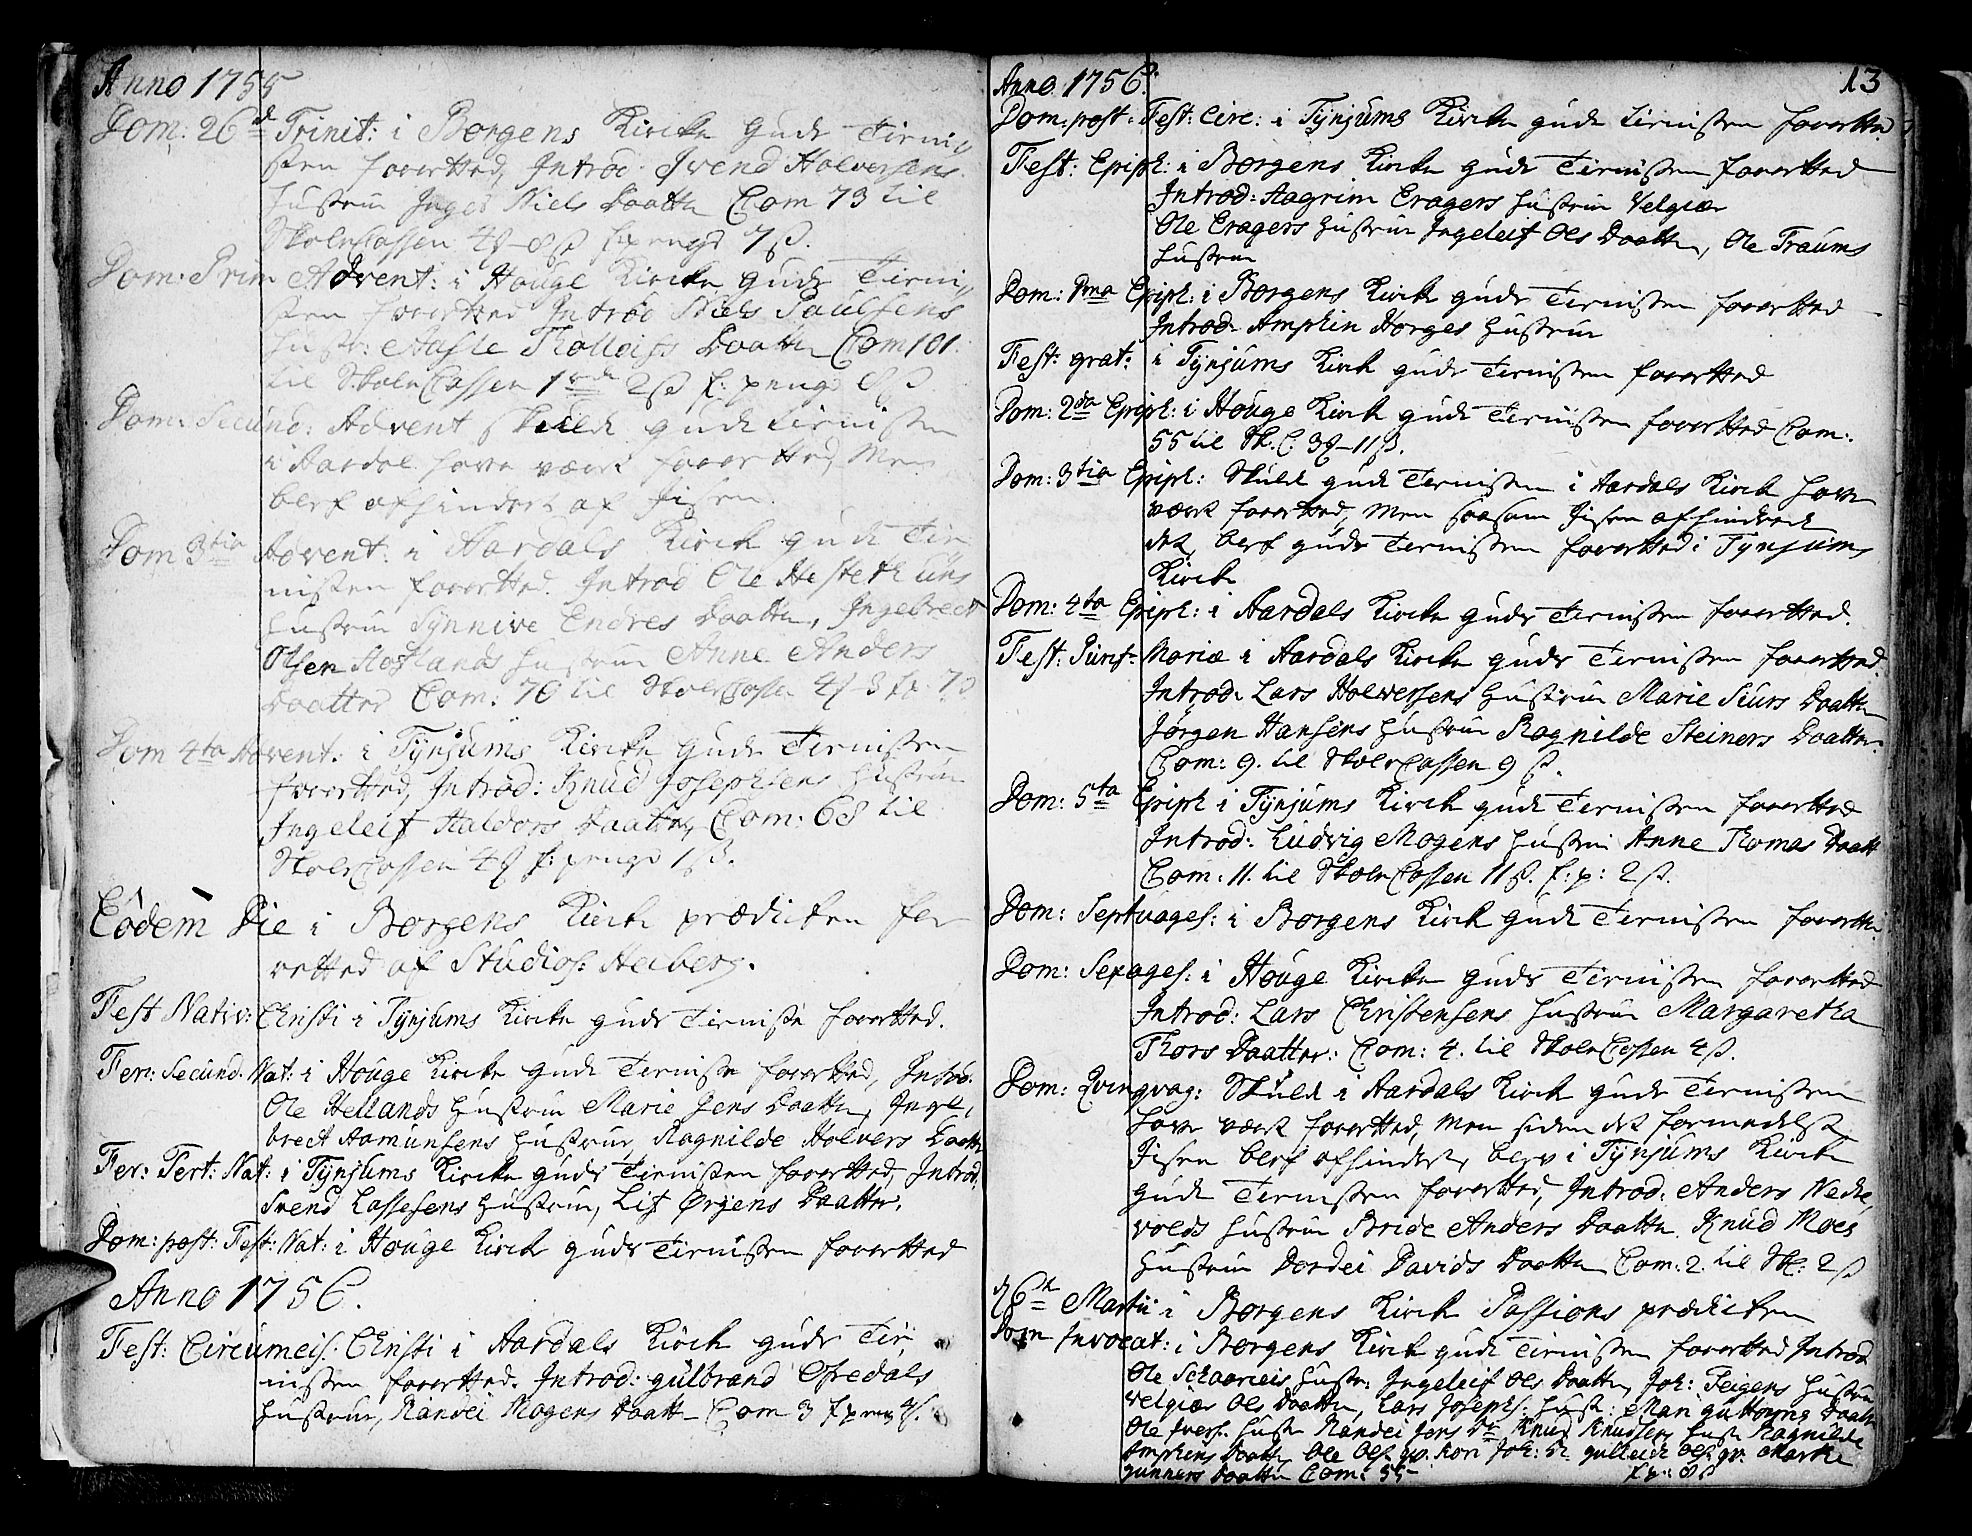 Anno 1755
Dom: 26d Trinit: i Borgens Kircke Guds Tieni,
sten forretted, Introd: Svend Holversens
hustru Inger Niels Daatter Com 73 til
Skole Cassen 4 8 ß 7 ß.
Dom: Prim Advent: i Houge Kircke Guds Tieni,
sten forretted Introd Niels Paulsens
hustr: Aasle Daatter Com 101:
til Skole Cassen 1 2 ß 8 ß
Dom: Secund: Advent skulde guds tienisten
i Aardal have været forrettet, Men
blef afhindert af Jisen.
Dom 3tia Advent: i Aardals Kirck guds Tie
nisten forretted. Introd Ole Hestethuns
hustru Synnive Endres Daatter, Ingebrect
Olsen hustru Anne Anders
Daatter Com: 70 til Skole Cassen
Dom 4ta Advent: i Tynjums Kircke Guds Tienisten
forretted, Introd: Knud Josephsens hustru
Ingeleif Haldors Daatter, Com: 68 til
Skole Cassen 4 1 ß.
Eodem Die i Borgens Kirck prædicken for
retted af Studios: Heiberg.
Fest Nativ: Christi i Tynjums Kircke guds Tieniste forretted.
Fer: Secund. Nat: i Houge Kircke guds Tieniste forretted, Introd:
Ole Hellands hustrue Marie Jens Daatter, Ingel,
brect Aamunsens hustrue, Ragnilde Holvers Daatter
Fer: Tert: Nat: i Tynjums Kircke guds Tienisten forretted, Introd:
Svend Lassesens hustrue, Lisf Ørjens Daatter.
Dom: post: Fest: Nat: i Houge Kirck guds Tienisten forretted
Anno 1756.
Fest: Circumcis: Christi i Aardals Kirck guds Tie,
nisten forretted. Introd: gulbrand Ofredals
hustrue, Randei Mogens Daatter Com 3
Anno 1756. 13
Dom: post: Fest: Circ: i Tynjums Kircke guds tienisten forretted
Fest: Epiph: i Borgens Kircke guds Tienisten forretted
Introd: Aagrim Eragers hustrue Velgiær
Ole Eragers hustrue Ingeleif Ols Daatter, Ole Traums
hustrue
Dom: 1ma Epiph: i Borgens Kirck guds Tienisten forretted
Introd: Amphin Horges hustrue
Fest: grat: i Tynjums Kirck guds Tienisten forretted
Dom: 2da Epiph: i Houge Kirck guds Tienisten forretted Com:
55 til Sk: C: 3 11 ß.
Dom: 3tia Epiph: Skulde guds Tienisten i Aardals Kirck have
været forretted, Men saasom Jisen afhindrede
det, blef guds Tienisten forretted i Tynjums
Kircke
Dom: 4ta Epiph: i Aardals Kircke guds Tienisten forretted.
Fest: Purif: Mariæ i Aardals Kircke guds Tienisten forretted.
Introd: Lars Holversens hustrue Marie Siurs Daatter
Jørgen Hansens hustrue Ragnilde Steiners Daatter.
Com: 9. til Skole Cassen 9 ß.
Dom: 5ta Epiph i Tynjums Kirck guds Tienisten forretted
Introd: Ludvig Mogens hustru Anne Thomas Daatt
Com: 11. til Skole Cassen 11 ß. f: p: 2 ß.
Dom: Septuages: i Borgens Kirck guds Tienisten forrette.
Dom: Sexages: i Houge Kircke guds Tienisten forretted
Introd: Lars Christensens hustrue Margaretha
Thors Daatter: Com: 4. til Skole Cassen 4 ß.
Dom: Qvinqvag: Skulde i Aardals Kirck guds Tienisten
have været forretted, Men siden det formedelst
Jisen blef afhindret, blev i Tynjums Kircke
guds Tienisten forretted, Introd: Anders Nedre,
volds hustrue Bride Anders Daatter. Knud Moes
hustrue Dordei Davids Daatter Com: 2. til Sk: 2 ß
Martii i Borgens Kirck Passions prædicken
Dom Invocat: i Borgens Kirck guds Tienisten forretted Introd
Ole hustr: Ingeleif Ols Daatter, Joh: Teigens hustrue
Velgiær Ols Daatter, Lars Josephs: hust: Daatter
Ole Ivers: hustr Randei Jens Dr Knud Knudsens hust Ragnilde
Amphins Daatter Ole Ols: qv. Kari Joh: Dr ols: qv. Marthe
gunners Daatter Com: 55 8 ß